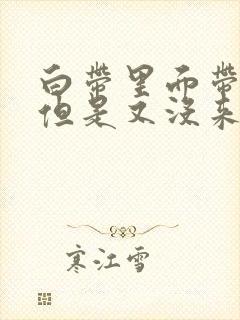 白带里面带
但是又没来
寒江雪